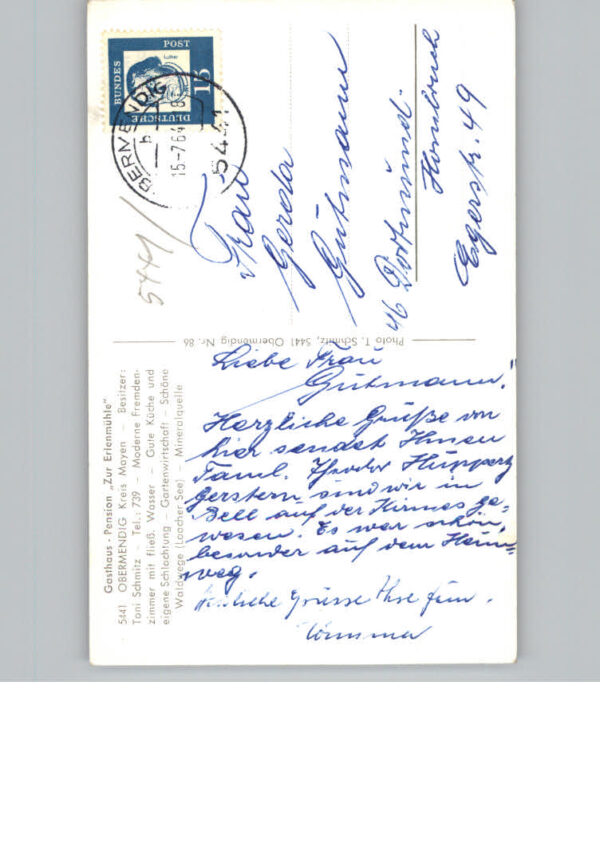 Gasthaus - Pension „Zur Erlenmühle"
5441 OBERMENDIG Kreis Mayen – Besitzer:
Toni Schmitz – Tel.: 739 – Moderne Fremden-
zimmer mit fließ. Wasser – Gute Küche und
eigene Schlachtung – Gartenwirtschaft – Schöne
Waldwege (Laacher See) – Mineralquelle
Liebe Frau
Gutmann!
Herzliche Grüße von
hier sendet Ihnen
Faml. Theodor Huppertz
Gerstern sind wir in
Bell auf der Kirmes ge-
wesen. Es war schön,
besonder auf dem Heim-
weg.
Herzliche Grüsse Ihre
Photo T. Schmitz, 5441 Obermendig Nr. 86
DEUTSCHE
BUNDES
POST
15
OBERMENDIG
b
15-7.64
5441
5441
Frau
Gerda
Gutmann
46 Dortmund-
Hombruch
Egerstr. 49